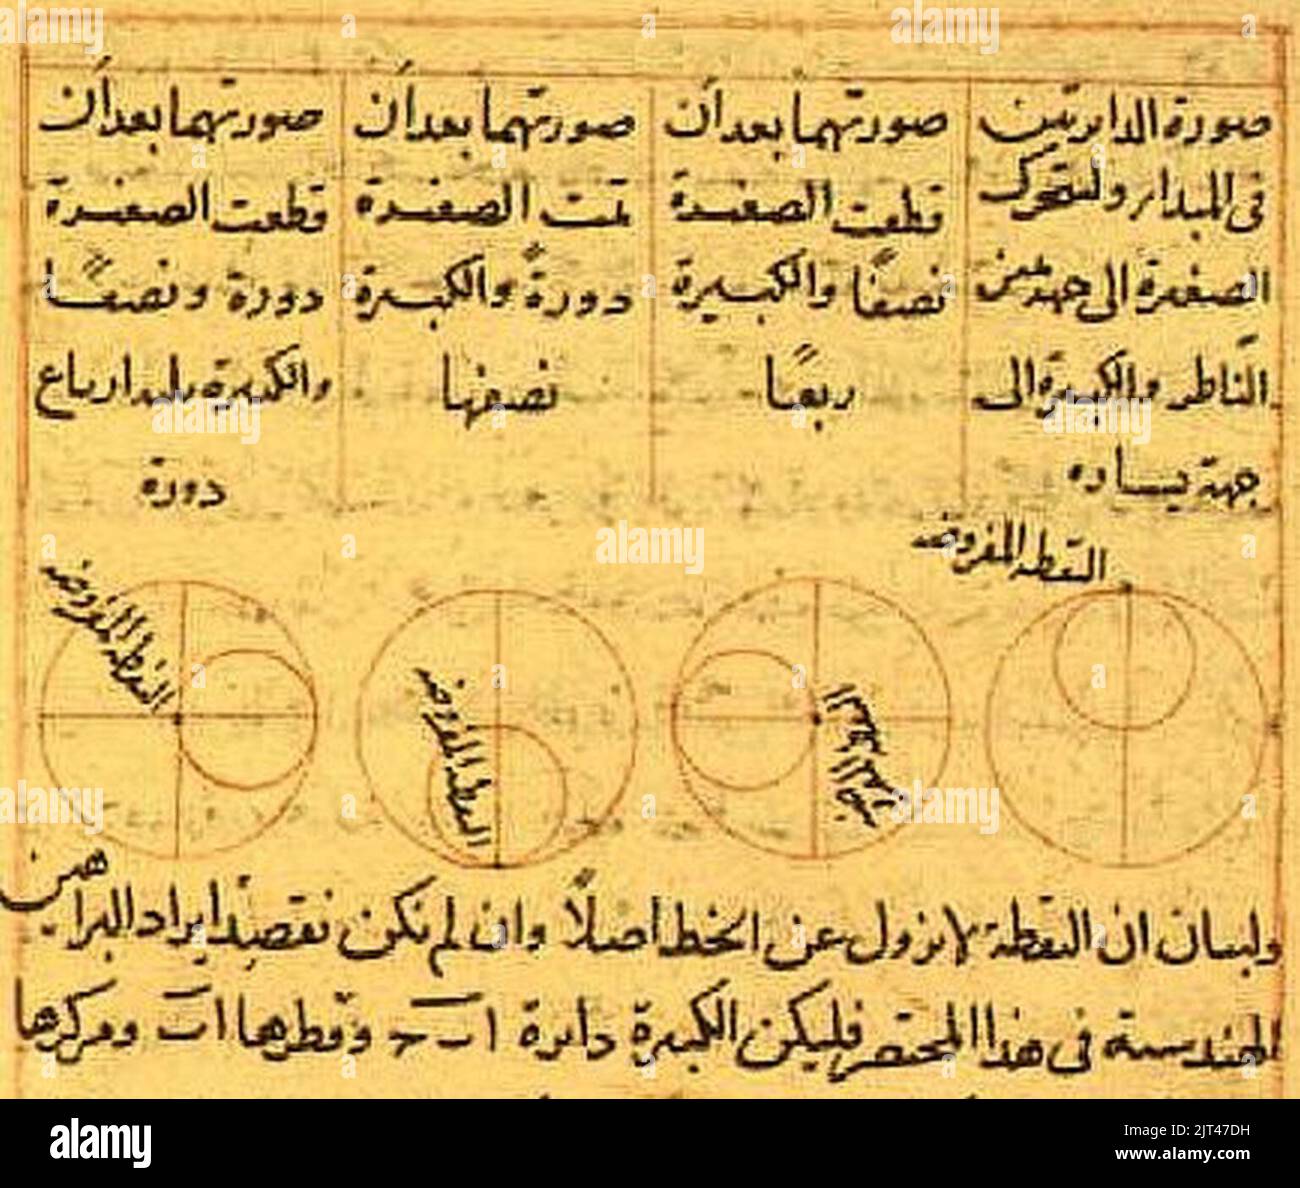 صورة الدائرتين
فى المبدا ولتتحرك
الصغيرة الى جهة يمين
الناظر والكبيرة الى
جهة يساره
صورتهما بعد أن
قطعت الصغيرة
نصفًا والكبيرة
ربعًا
صورتهما بعد أن
تمت الصغيرة
دورةً والكبيرة
نصفها
صورتهما بعد أن
قطعت الصغيرة
دورة ونصفًا
والكبيرة ثلثة ارباع
دورة
النقطة المفروضة
النقطة المفروضة
النقطة المفروضة
النقطة المفروضة
ولبيان ان النقطة لا تزول عن الخط أصلاً وان لم نكن نقصد ايراد البراهين
الهندسية فى هذا المختصر فليكن الكبيرة دائرة اب ج وقطرها اب ومركزها
alamy
Image ID: 2JT47DH
www.alamy.com